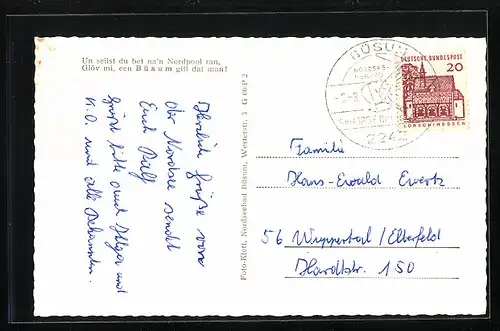 Un seilst du bet na'n Nordpool ran,
Glöv mi, een Büsum gift dat man!
Herzliche Grüße von
der Nordsee sendet
Euch Rolf
Grüßt bitte auch Helga und
K.O. und alle Bekannten.
Foto-Klett, Nordseebad Büsum, Westerstr. 3 G 66-P 2
BÜSUM
NORDSEE-
HEILBAD
2242
DEUTSCHE BUNDESPOST
20
LORSCH/HESSEN
Familie
Hans-Ewald Ewertz
56 Wuppertal/Elberfeld
Hardtstr. 150